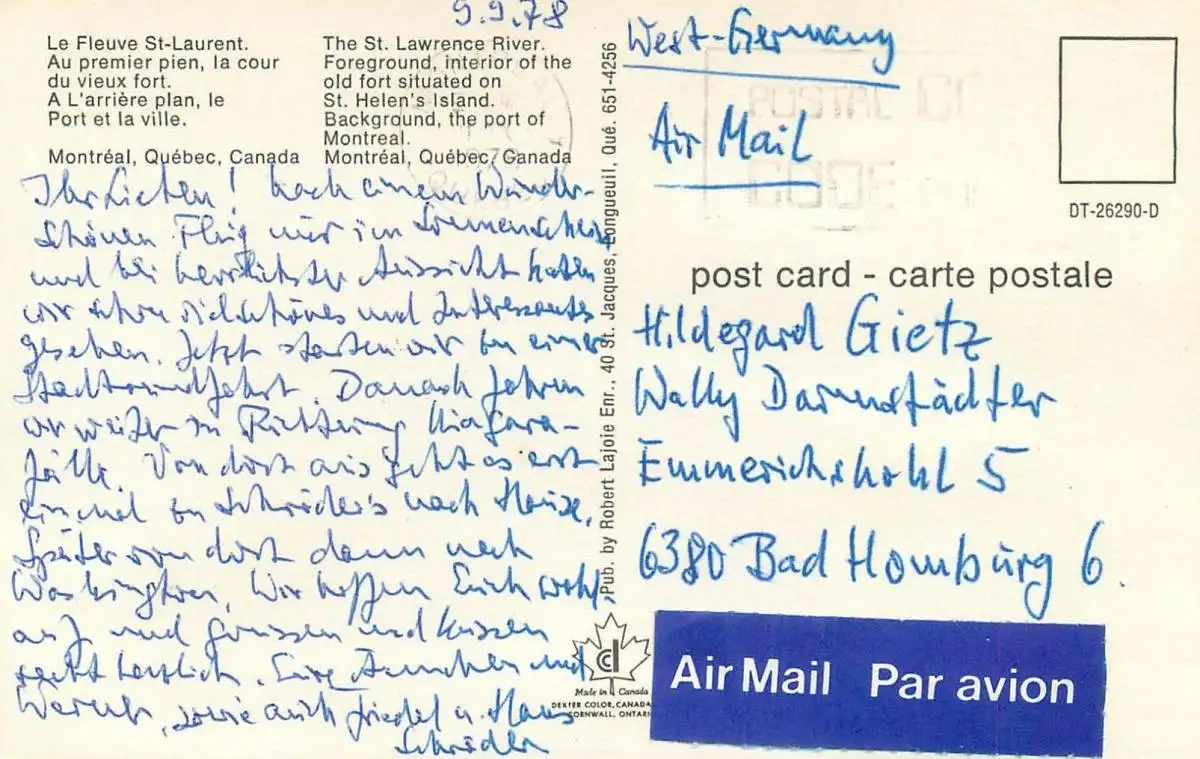 9.9.78
Le Fleuve St-Laurent.
Au premier pien, la cour
du vieux fort.
A L'arrière plan, le
Port et la ville.
Montréal, Québec, Canada
The St. Lawrence River.
Foreground, interior of the
old fort situated on
St. Helen's Island.
Background, the port of
Montreal.
Montréal, Québec, Canada
Ihr Lieben! Nach einem wunder-
schönen Flug nur im Sonnenschein
und bei herrlichster Aussicht haben
wir schon viel schönes und Interessantes
gesehen. Jetzt starten wir zu einer
Stadtrundfahrt. Danach fahren
wir weiter in Richtung Niagara-
fälle. Von dort aus geht es erst
einmal zu Schröder's nach Hause,
Später von dort dann nach
Washington. Wir hoffen Euch wohl-
auf und grüssen und küssen
recht herzlich. Eure Annchen und
Werner, sowie auch Friedel u. Hans
Schröder
Pub. by Robert Lajoie Enr., 40 St. Jacques, Longueuil, Qué. 651-4256
West-Germany
Air Mail
POSTAL
CODE
DT-26290-D
post card - carte postale
Hildegard Gietz
Wally Darmstädter
Emmerichshohl 5
6380 Bad Homburg 6.
Made in Canada
DEXTER COLOR, CANADA
CORNWALL, ONTARIO
Air Mail Par avion